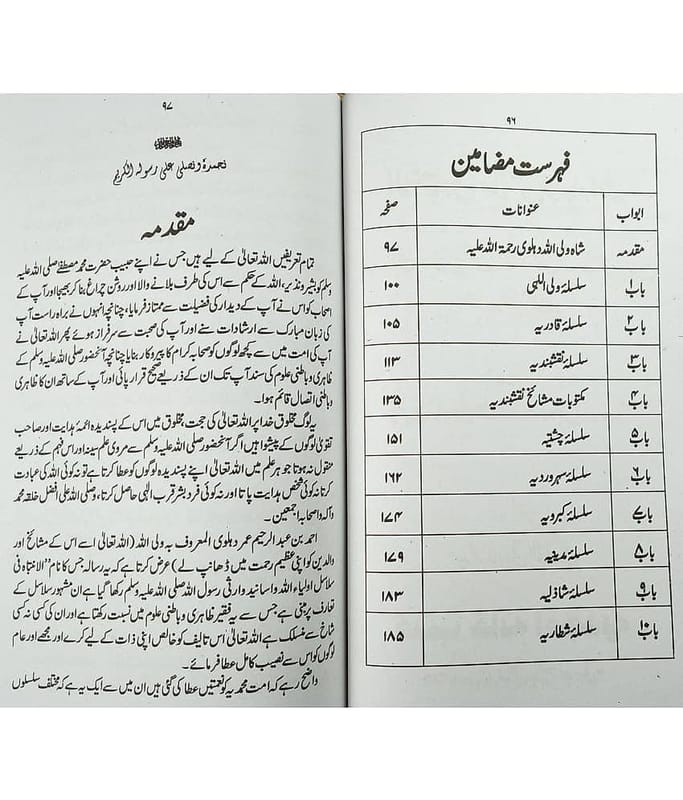 ۹۶
فہرست مضامین
ابواب عنوانات صفحہ
مقدمہ شاہ ولی اللہ دہلوی رحمۃ اللہ علیہ ۹۷
باب ۱ سلسلۂ ولی اللہی ۱۰۰
باب ۲ سلسلۂ قادریہ ۱۰۵
باب ۳ سلسلۂ نقشبندیہ ۱۱۳
باب ۴ مکتوبات مشائخ نقشبندیہ ۱۳۵
باب ۵ سلسلۂ چشتیہ ۱۵۱
باب ۶ سلسلۂ سہروردیہ ۱۶۲
باب ۷ سلسلۂ کبرویہ ۱۷۴
باب ۸ سلسلۂ مدینیہ ۱۷۹
باب ۹ سلسلۂ شاذلیہ ۱۸۳
باب ۱۰ سلسلۂ شطاریہ ۱۸۵
۹۷
نحمدہٗ و نصلی علیٰ رسولہ الکریم
مقدمہ
تمام تعریفیں اللہ تعالیٰ کے لیے ہیں جس نے اپنے حبیب حضرت محمد مصطفےٰ صلی اللہ علیہ
وسلم کو بشیر و نذیر، اللہ کے حکم سے اس کی طرف بلانے والا اور روشن چراغ بنا کر بھیجا اور آپ کے
اصحاب کو اس نے آپ کے دیدار کی فضیلت سے ممتاز فرمایا، چنانچہ انہوں نے براہ راست آپ
کی زبان مبارک سے ارشادات سنے اور آپ کی صحبت سے سرفراز ہوئے پھر اللہ تعالیٰ نے
آپ کی امت میں سے کچھ لوگوں کو صحابہ کرام کا پیروکار بنایا چنانچہ آنحضور صلی اللہ علیہ وسلم کے
ظاہری و باطنی علوم کی سند آپ تک ان کے ذریعے صحیح قرار پائی اور آپ کے ساتھ ان کا ظاہری
و باطنی اتصال قائم ہوا۔
یہ لوگ مخلوق خدا پر اللہ تعالیٰ کی حجت مخلوق میں اس کے پسندیدہ ائمۂ ہدایت اور صاحب
تقویٰ لوگوں کے پیشوا ہیں اگر آنحضور صلی اللہ علیہ وسلم سے مروی علم سینہ اور اس فہم کے ذریعے
منقول نہ ہوتا جو ہر علم میں اللہ تعالیٰ اپنے پسندیدہ لوگوں کو عطا کرتا ہے تو نہ کوئی اللہ کی عبادت
کرتا نہ کوئی شخص ہدایت پاتا اور نہ کوئی فرد بشر قرب الٰہی حاصل کرتا، وصلی اللہ علی افضل خلقہ محمد
وآلہ واصحابہ اجمعین۔
احمد بن عبدالرحیم عمر دہلوی المعروف بہ ولی اللہ (اللہ تعالیٰ اسے اس کے مشائخ اور
والدین کو اپنی عظیم رحمت میں ڈھانپ لے) عرض کرتا ہے کہ یہ رسالہ جس کا نام "الانتباہ فی
سلاسل اولیاء اللہ واسانید وارثی رسول اللہ صلی اللہ علیہ وسلم رکھا گیا ہے ان مشہور سلاسل کے
تعارف پر مبنی ہے جس سے یہ فقیر ظاہری و باطنی علوم میں نسبت رکھتا ہے اور ان کی کسی نہ کسی
شاخ سے منسلک ہے اللہ تعالیٰ اس تالیف کو خالص اپنی ذات کے لیے کرے اور مجھے اور عام
لوگوں کو اس سے نصیب کامل عطا فرمائے۔
واضح رہے کہ امت محمدیہ کو نعمتیں عطا کی گئی ہیں ان میں سے ایک یہ ہے کہ مختلف سلسلوں